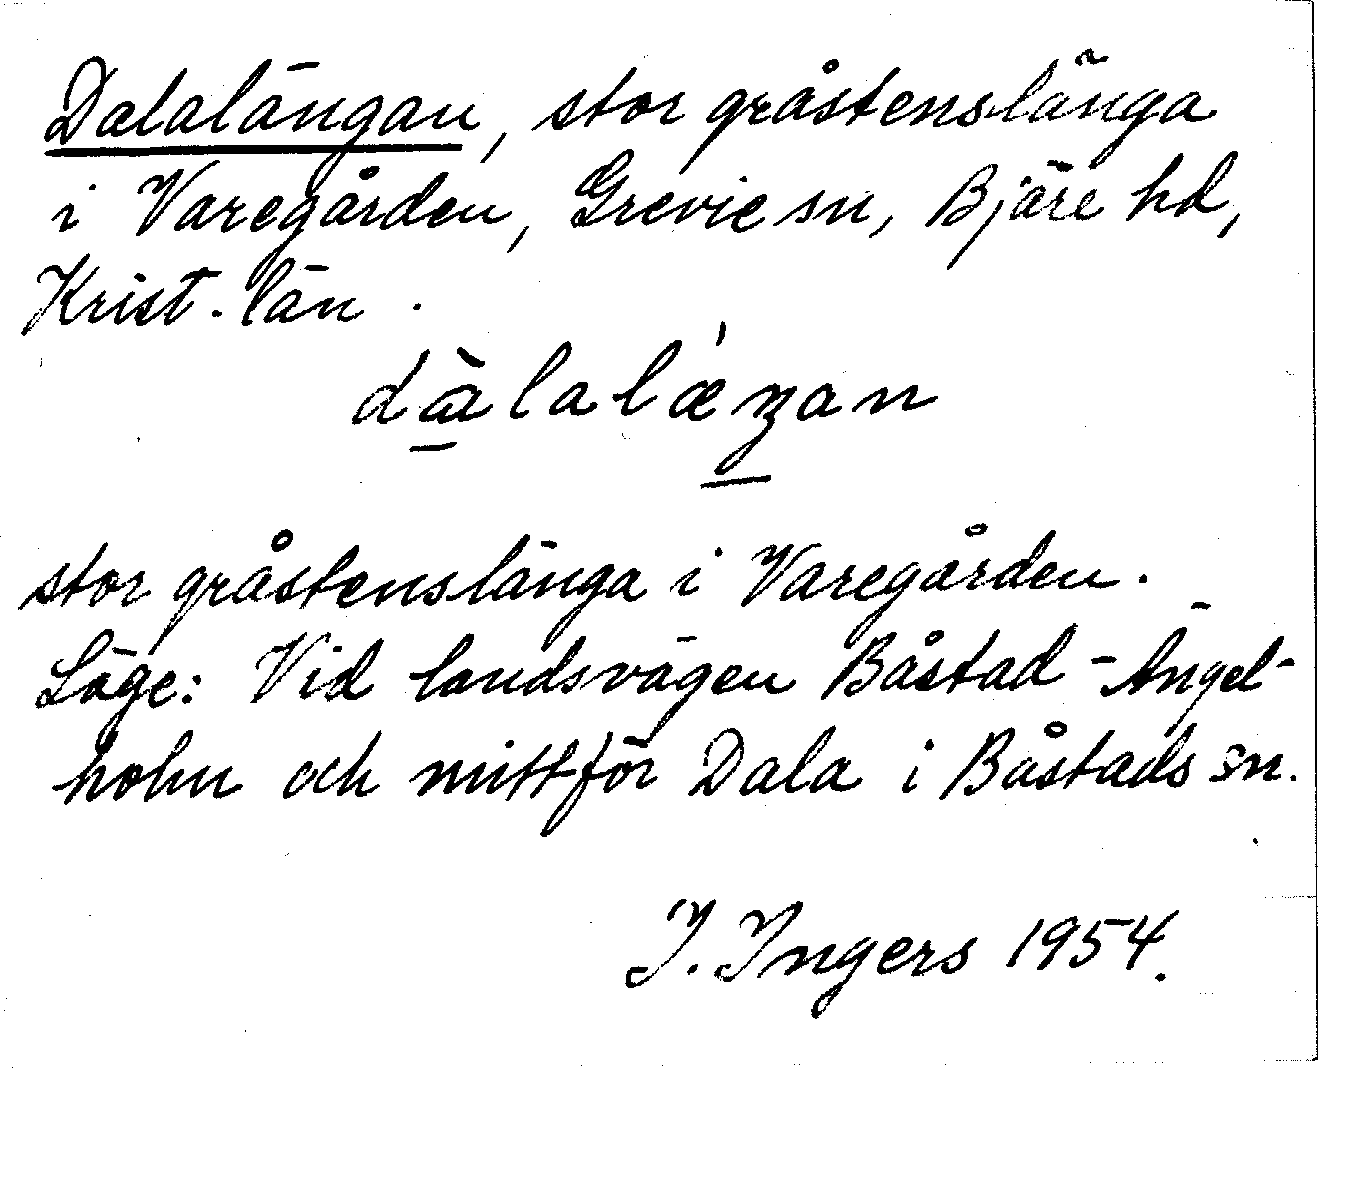 Dalalängan, stor gråstenslänga
i Varegården, Grevie sn, Bjäre hd,
Krist. län.
dàlalǽŋan
stor gråstenslänga i Varegården.
Läge: Vid landsvägen Båstad - Ängel-
holm och mittför Dala i Båstads sn.
I. Ingers 1954.